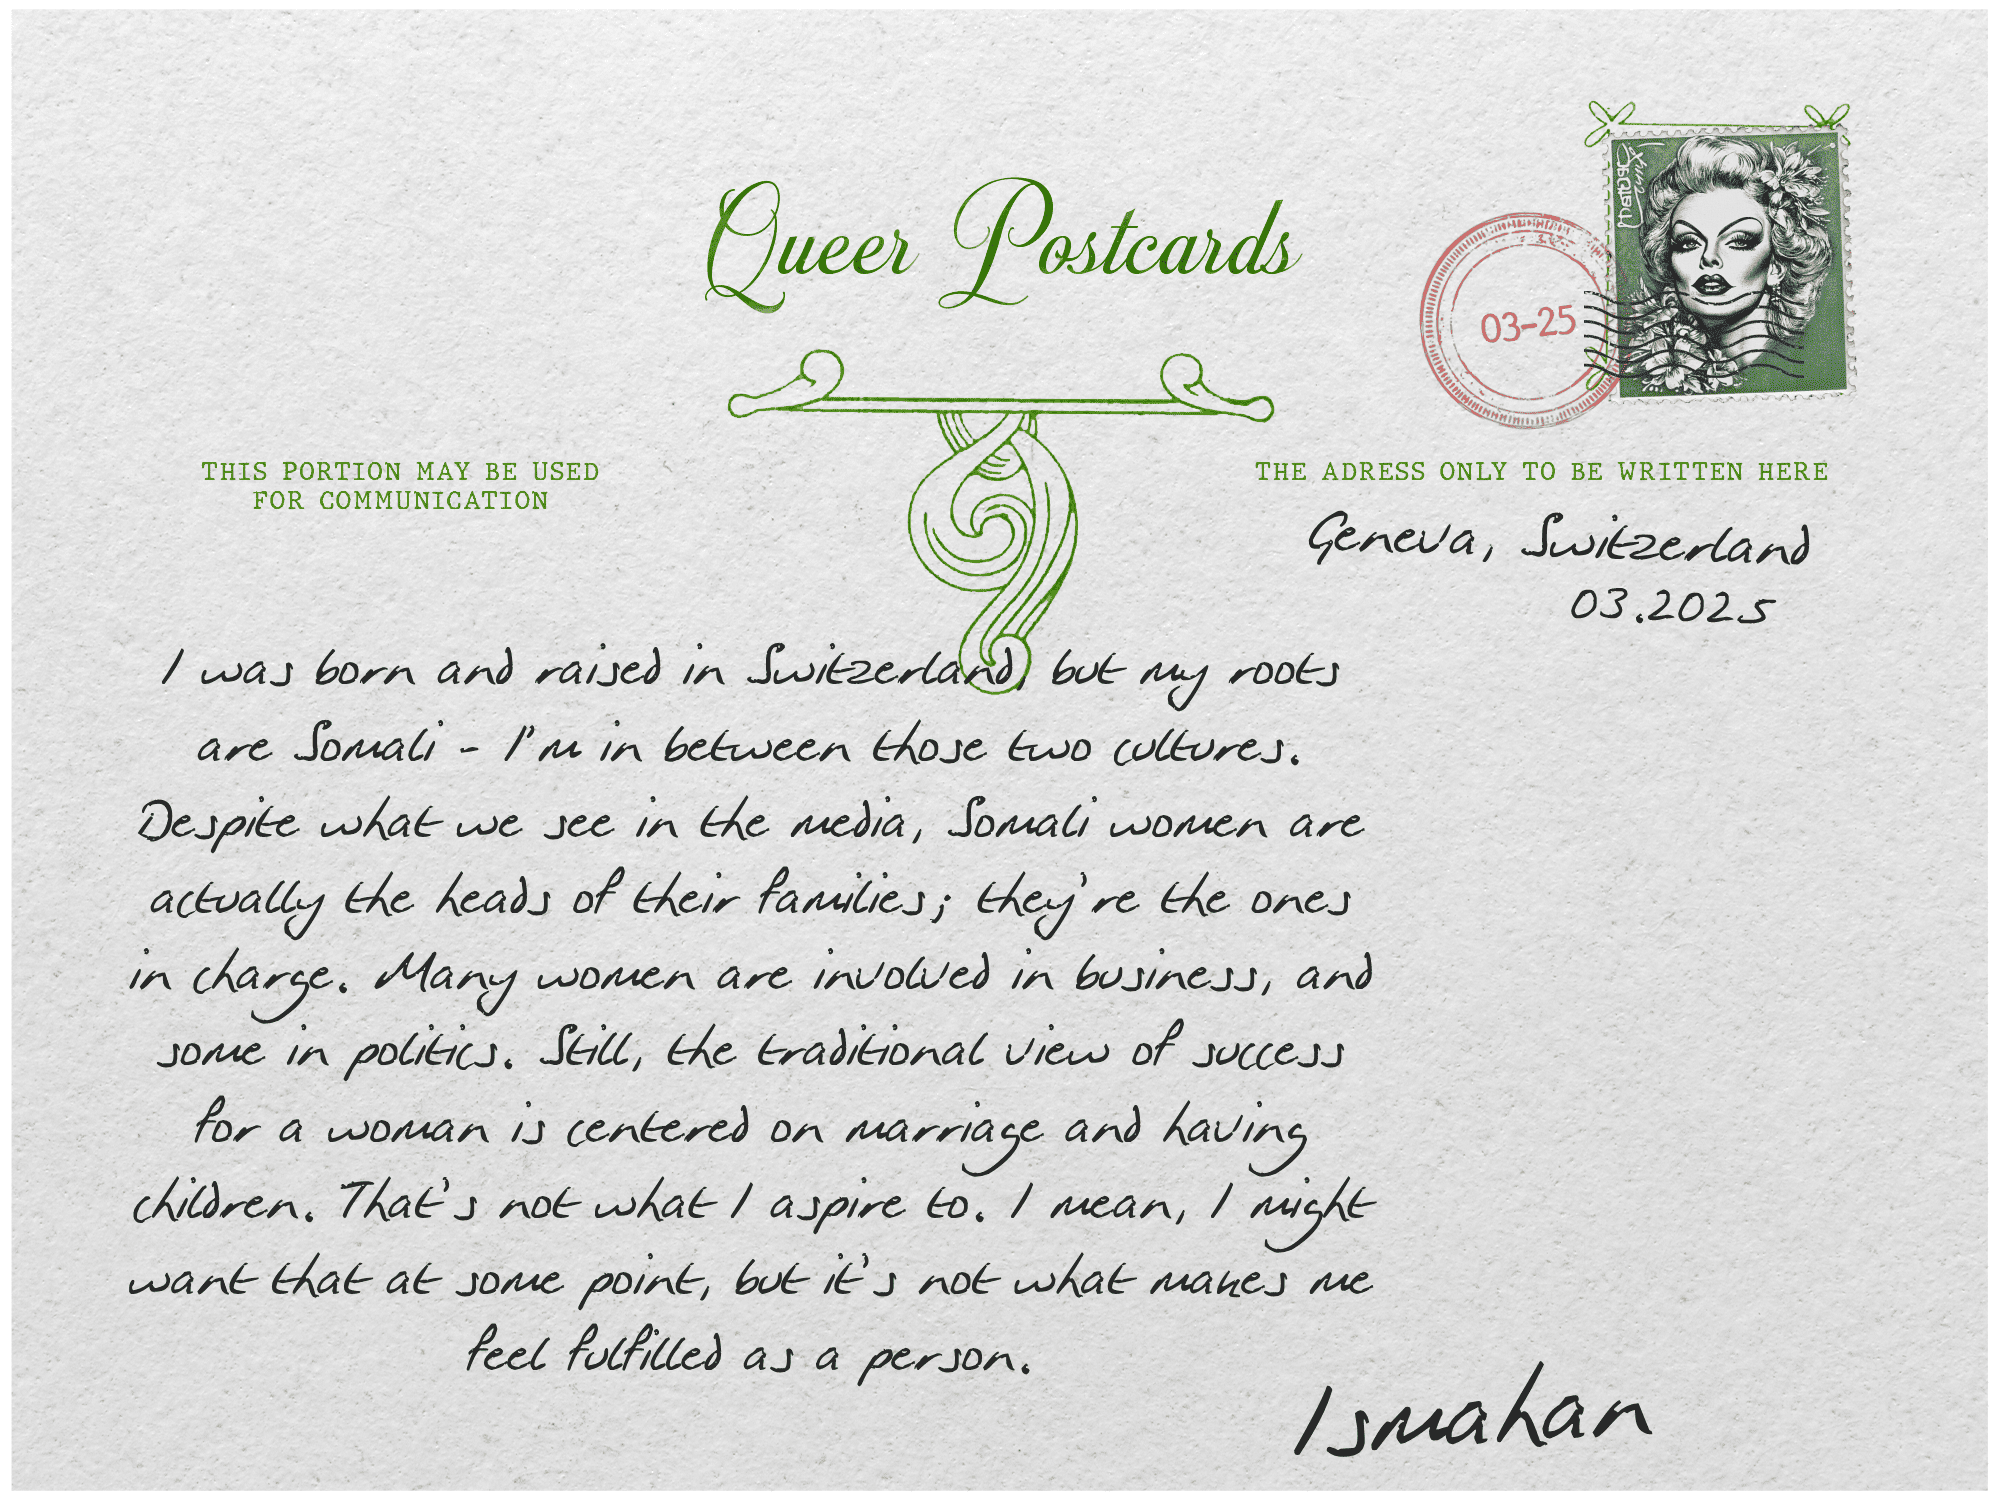 Queer Postcards
03-25
THIS PORTION MAY BE USED
FOR COMMUNICATION
THE ADRESS ONLY TO BE WRITTEN HERE
Geneva, Switzerland
03.2025
I was born and raised in Switzerland, but my roots
are Somali - I'm in between those two cultures.
Despite what we see in the media, Somali women are
actually the heads of their families; they're the ones
in charge. Many women are involved in business, and
some in politics. Still, the traditional view of success
for a woman is centered on marriage and having
children. That's not what I aspire to. I mean, I might
want that at some point, but it's not what makes me
feel fulfilled as a person.
Ismahan